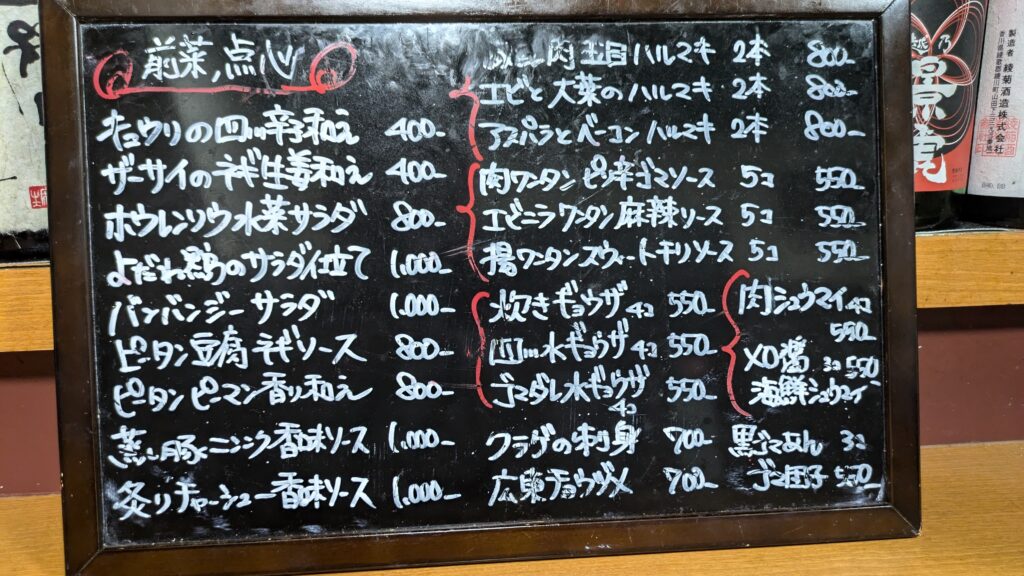 前菜、点心
キュウリの四川辛子和え 400-
ザーサイのネギ生姜和え 400-
ホウレンソウ水菜サラダ 800-
よだれ鶏のサラダ仕立て 1,000-
バンバンジーサラダ 1,000-
ピータン豆腐ネギソース 800-
ピータンピーマン香り和え 800-
蒸し豚ニンニク香味ソース 1,000-
炙りチャーシュー香味ソース 1,000-
肉五目ハルマキ 2本 800-
エビと大葉のハルマキ 2本 800-
アスパラとベーコンハルマキ 2本 800-
肉ワンタンピリ辛ゴマソース 5コ 550-
エビニラワンタン麻辣ソース 5コ 550-
揚ワンタンスウィートチリソース 5コ 550-
炊きギョウザ 4コ 550-
四川水ギョウザ 4コ 550-
ゴマダレ水ギョウザ 4コ 550-
クラゲの刺身 700-
広東チョウヅメ 700-
肉シュウマイ 4コ 550-
XO醤 3コ 550
海鮮シュウマイ
黒ごまあん 3コ
ゴマ団子 550-
製造者 綾菊酒造株式会社